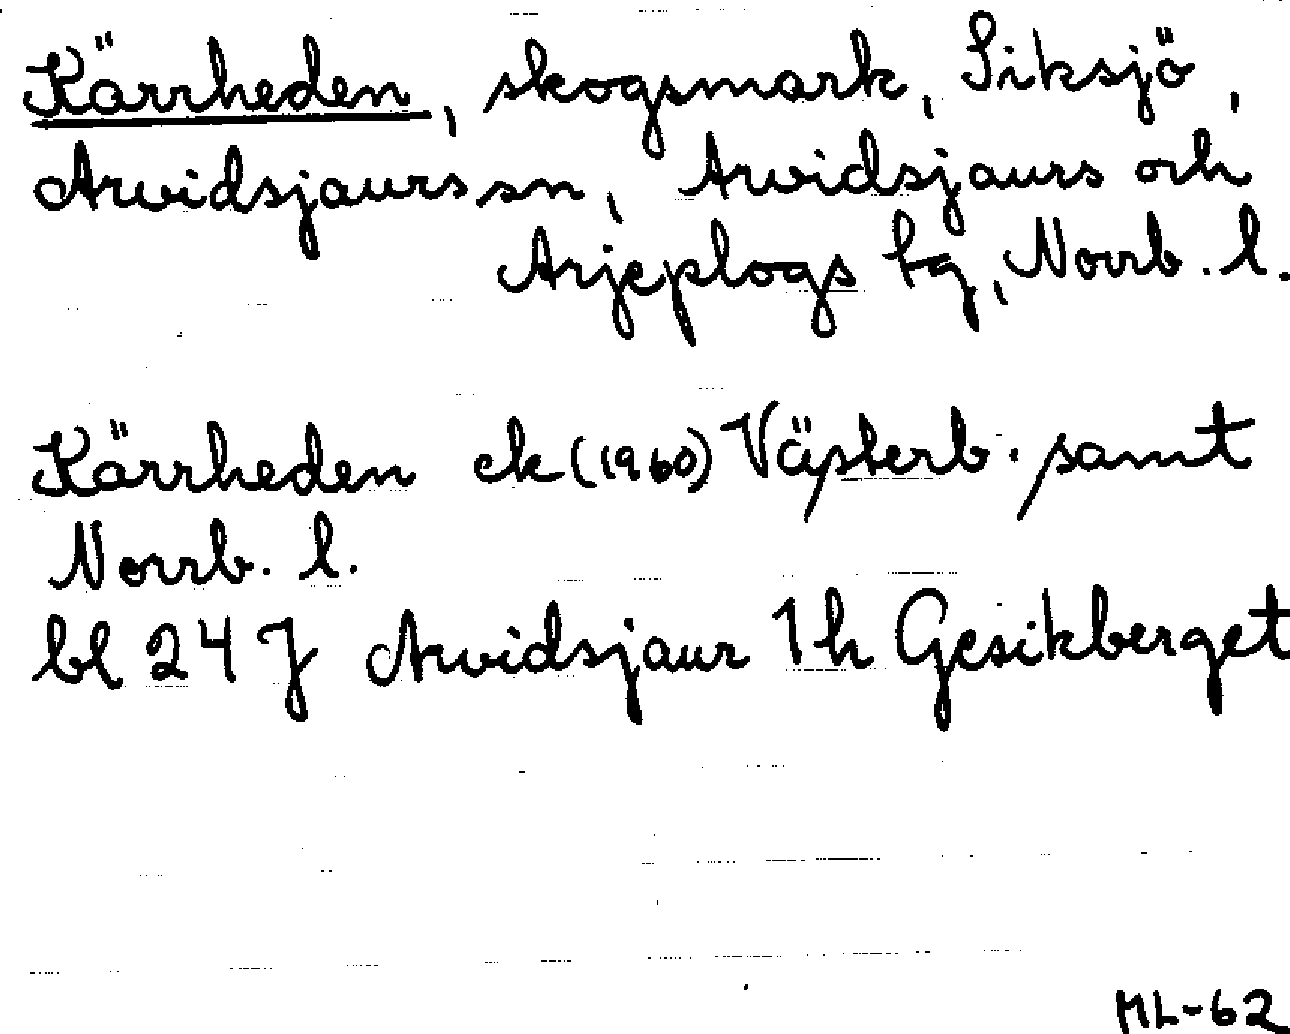 Kärrheden, skogsmark, Siksjö,
Arvidsjaurs sn, Arvidsjaurs och
Arjeplogs tg, Norrb. l.
Kärrheden ek (1960) Västerb. samt
Norrb. l.
bl 24 J Arvidsjaur 1h Gesikberget
ML-62